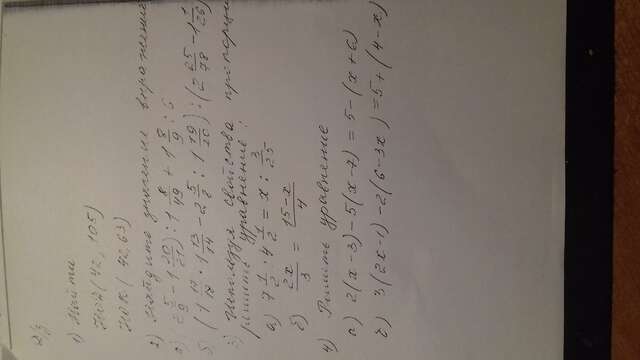 Д/з
1) Найти
НОД (42, 105)
НОК (42, 63)
2) Найдите значение выражения
а) (2 5/9 - 1 20/21) : 1 8/49 + 1 8/9 : 6
б) (1 17/18 · 1 13/14 - 2 5/8 : 1 19/26) : (2 25/78 - 1 1/26)
3) Используя свойства пропорции
решить уравнение:
а) 7 1/2 : 4 1/2 = x : 3/25
б) 2x/3 = 15-x/4
4) Решить уравнение
а) 2(x-3)-5(x-7) = 5-(x+6)
б) 3(2x-1)-2(6-3x) = 5+(4-x)